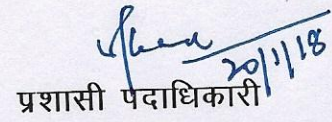 20/1/18
प्रशासी पदाधिकारी